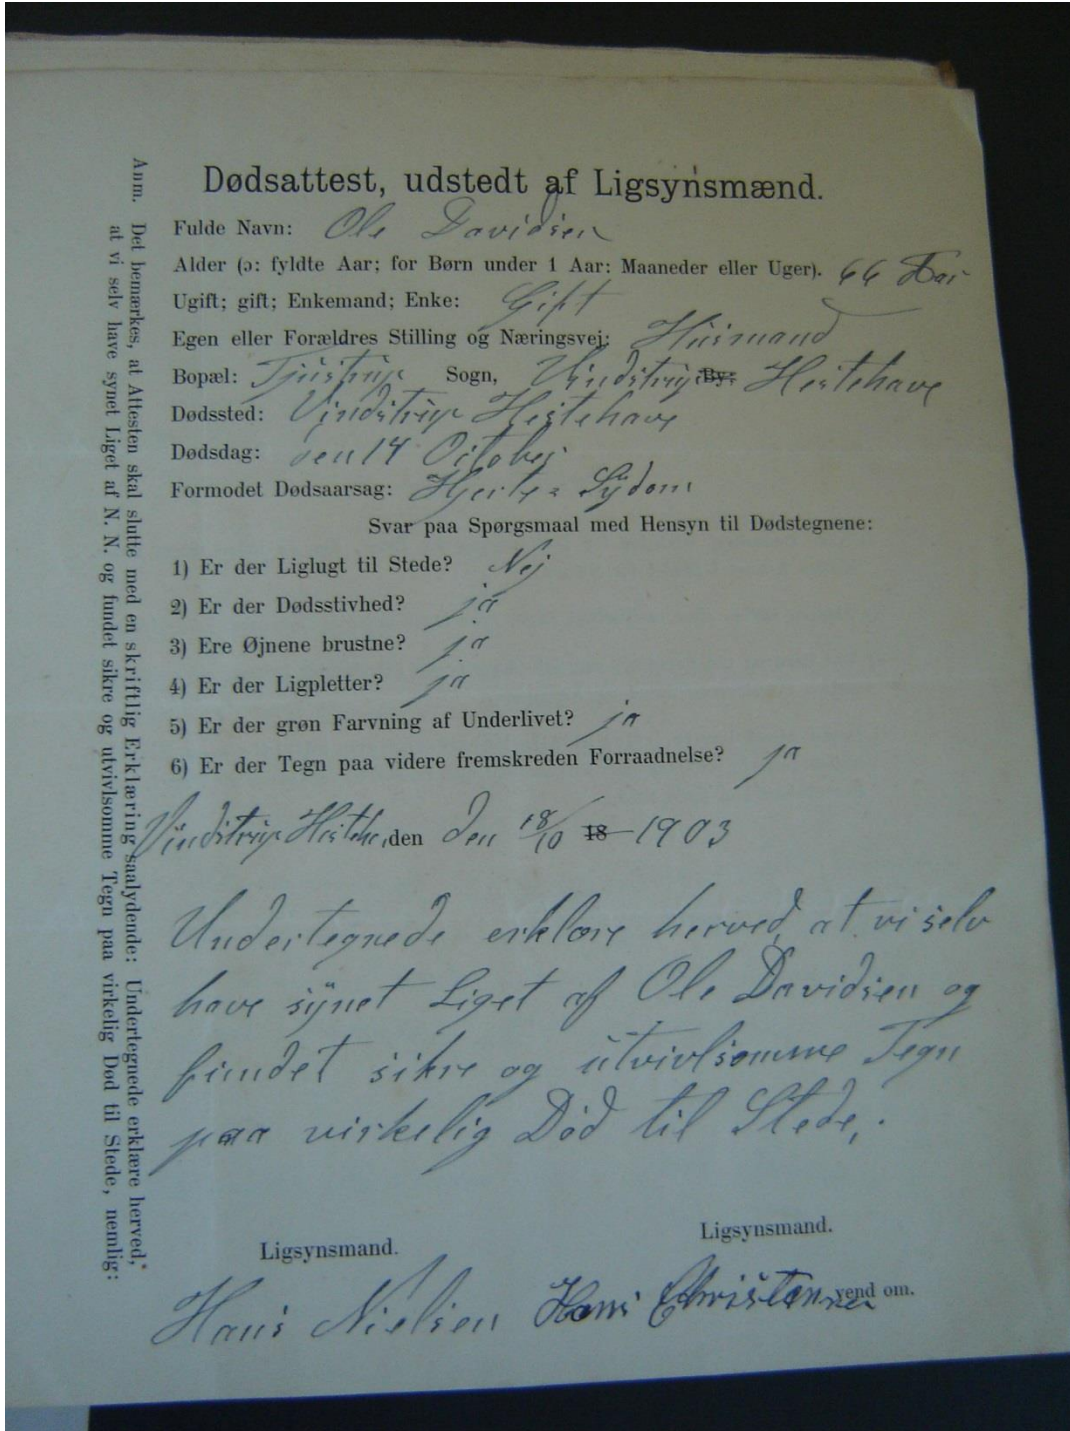 Dødsattest, udstedt af Ligsynsmænd.
Fulde Navn: Ole Davidsen
Alder (ɔ: fyldte Aar; for Børn under 1 Aar: Maaneder eller Uger). 66 Aar
Ugift; gift; Enkemand; Enke: Gift
Egen eller Forældres Stilling og Næringsvej: Husmand
Bopæl: Tjustrup Sogn, Vindstrup By: Hestehave
Dødssted: Vindstrup Hestehave
Dødsdag: den 14 October
Formodet Dødsaarsag: Hjerte = Sÿdom
Svar paa Spørgsmaal med Hensyn til Dødstegnene:
1) Er der Liglugt til Stede? Nej
2) Er der Dødsstivhed? ja
3) Ere Øjnene brustne? ja
4) Er der Ligpletter? ja
5) Er der grøn Farvning af Underlivet? ja
6) Er der Tegn paa videre fremskreden Forraadnelse? ja
Vindstrup Hesteh., den den 18/10 18 1903
Undertegnede erklære herved, at vi selv
have sÿnet Liget af Ole Davidsen og
fundet sikre og utvivlsomme Tegn
paa virkelig Död til Stede,.
Ligsynsmand. Ligsynsmand.
Hans Nielsen Hans Christensen
vend om.
Anm. Det bemærkes, at Attesten skal slutte med en skriftlig Erklæring saalydende: Undertegnede erklære herved,
at vi selv have synet Liget af N. N. og fundet sikre og utvivlsomme Tegn paa virkelig Død til Stede, nemlig: